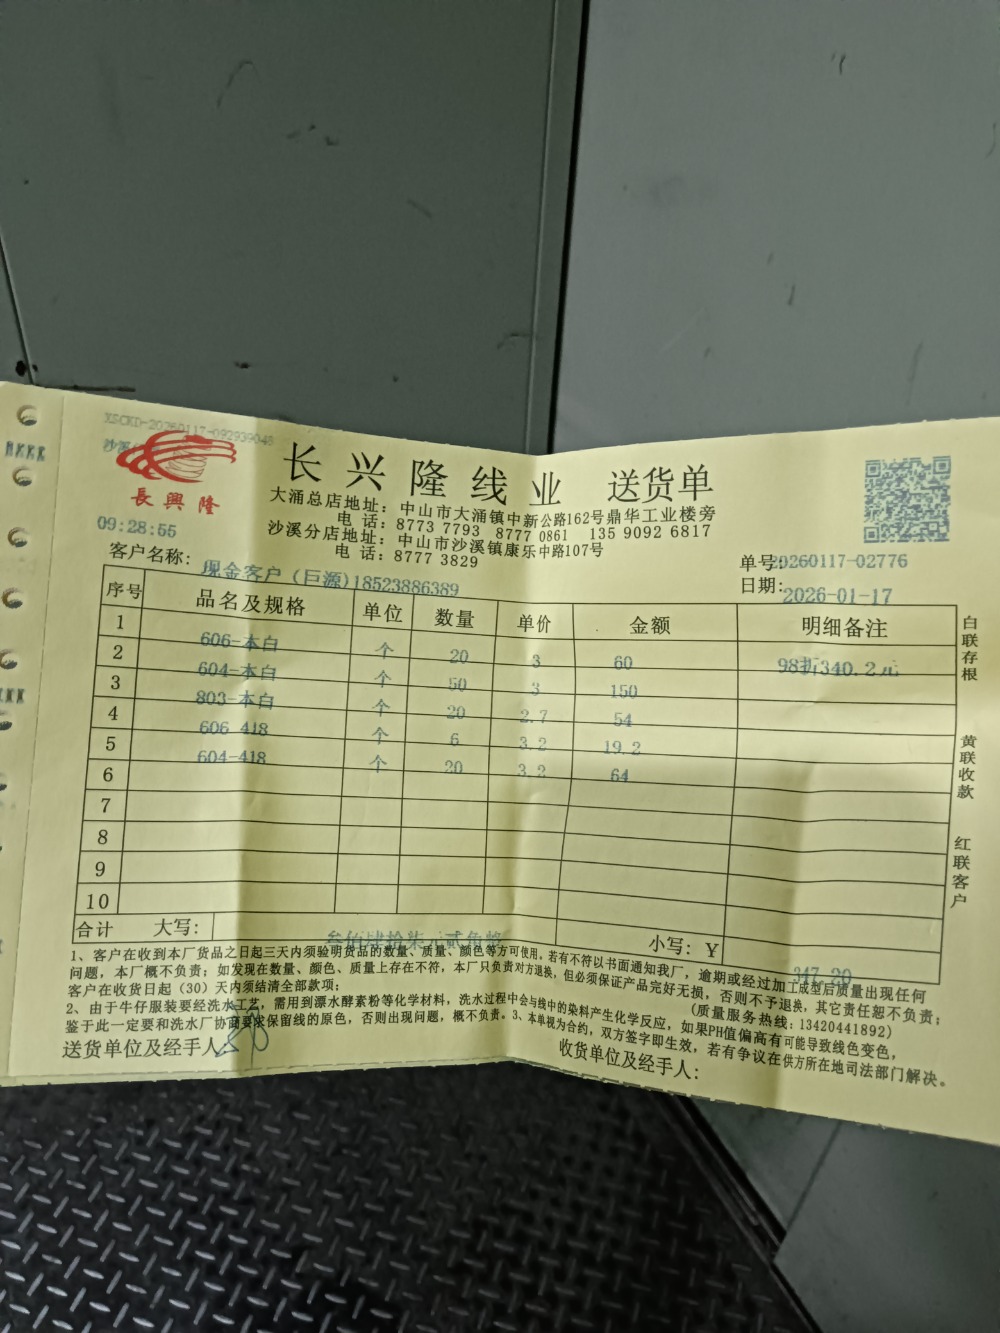 XSCKD-20260117-092939048
沙溪
長興隆
09:28:55
长兴隆线业 送货单
大涌总店地址：中山市大涌镇中新公路162号鼎华工业楼旁
电话：8773 7793 8777 0861 135 9092 6817
沙溪分店地址：中山市沙溪镇康乐中路107号
电话：8777 3829
单号：20260117-02776
客户名称：现金客户（巨源)18523886389
日期：2026-01-17
序号 品名及规格 单位 数量 单价 金额 明细备注
1 606-本白 个 20 3 60 98折340.2元
2 604-本白 个 50 3 150
3 803-本白 个 20 2.7 54
4 606-418 个 6 3.2 19.2
5 604-418 个 20 3.2 64
6
7
8
9
10
合计 大写：叁佰肆拾柒元贰角整 小写：Y 347.20
1、客户在收到本厂货品之日起三天内须验明货品的数量、质量、颜色等方可使用。若有不符以书面通知我厂，逾期或经过加工成型后质量出现任何
问题，本厂概不负责；如发现在数量、颜色、质量上存在不符，本厂只负责对方退换，但必须保证产品完好无损，否则不予退换，其它责任恕不负责；
客户在收货日起（30）天内须结清全部款项； （质量服务热线：13420441892）
2、由于牛仔服装要经洗水工艺，需用到漂水酵素粉等化学材料，洗水过程中会与线中的染料产生化学反应，如果PH值偏高有可能导致线色变色，
鉴于此一定要和洗水厂协商要求保留线的原色，否则出现问题，概不负责。3、本单视为合约，双方签字即生效，若有争议在供方所在地司法部门解决。
送货单位及经手人：
收货单位及经手人：
白联存根
黄联收款
红联客户